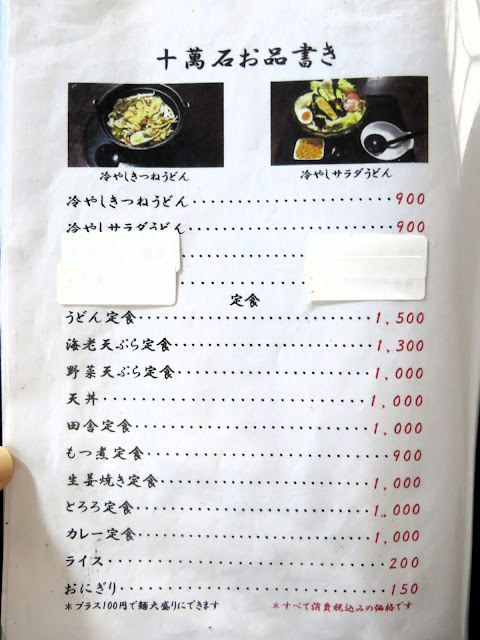 十萬石お品書き
冷やしきつねうどん
冷やしサラダうどん
冷やしきつねうどん・・・・・・・・・・・・・・・・・・・・・・・900
冷やしサラダうどん・・・・・・・・・・・・・・・・・・・・・・・900
定食
うどん定食・・・・・・・・・・・・・・・・・・・・・・・・・・・1,500
海老天ぷら定食・・・・・・・・・・・・・・・・・・・・・・・1,300
野菜天ぷら定食・・・・・・・・・・・・・・・・・・・・・・・1,000
天丼・・・・・・・・・・・・・・・・・・・・・・・・・・・・・・1,000
田舎定食・・・・・・・・・・・・・・・・・・・・・・・・・・・1,000
もつ煮定食・・・・・・・・・・・・・・・・・・・・・・・・・・・900
生姜焼き定食・・・・・・・・・・・・・・・・・・・・・・・・1,000
とろろ定食・・・・・・・・・・・・・・・・・・・・・・・・・・1,000
カレー定食・・・・・・・・・・・・・・・・・・・・・・・・・・1,000
ライス・・・・・・・・・・・・・・・・・・・・・・・・・・・・・・200
おにぎり・・・・・・・・・・・・・・・・・・・・・・・・・・・・・150
＊プラス100円で麺大盛りにできます ＊すべて消費税込みの価格です